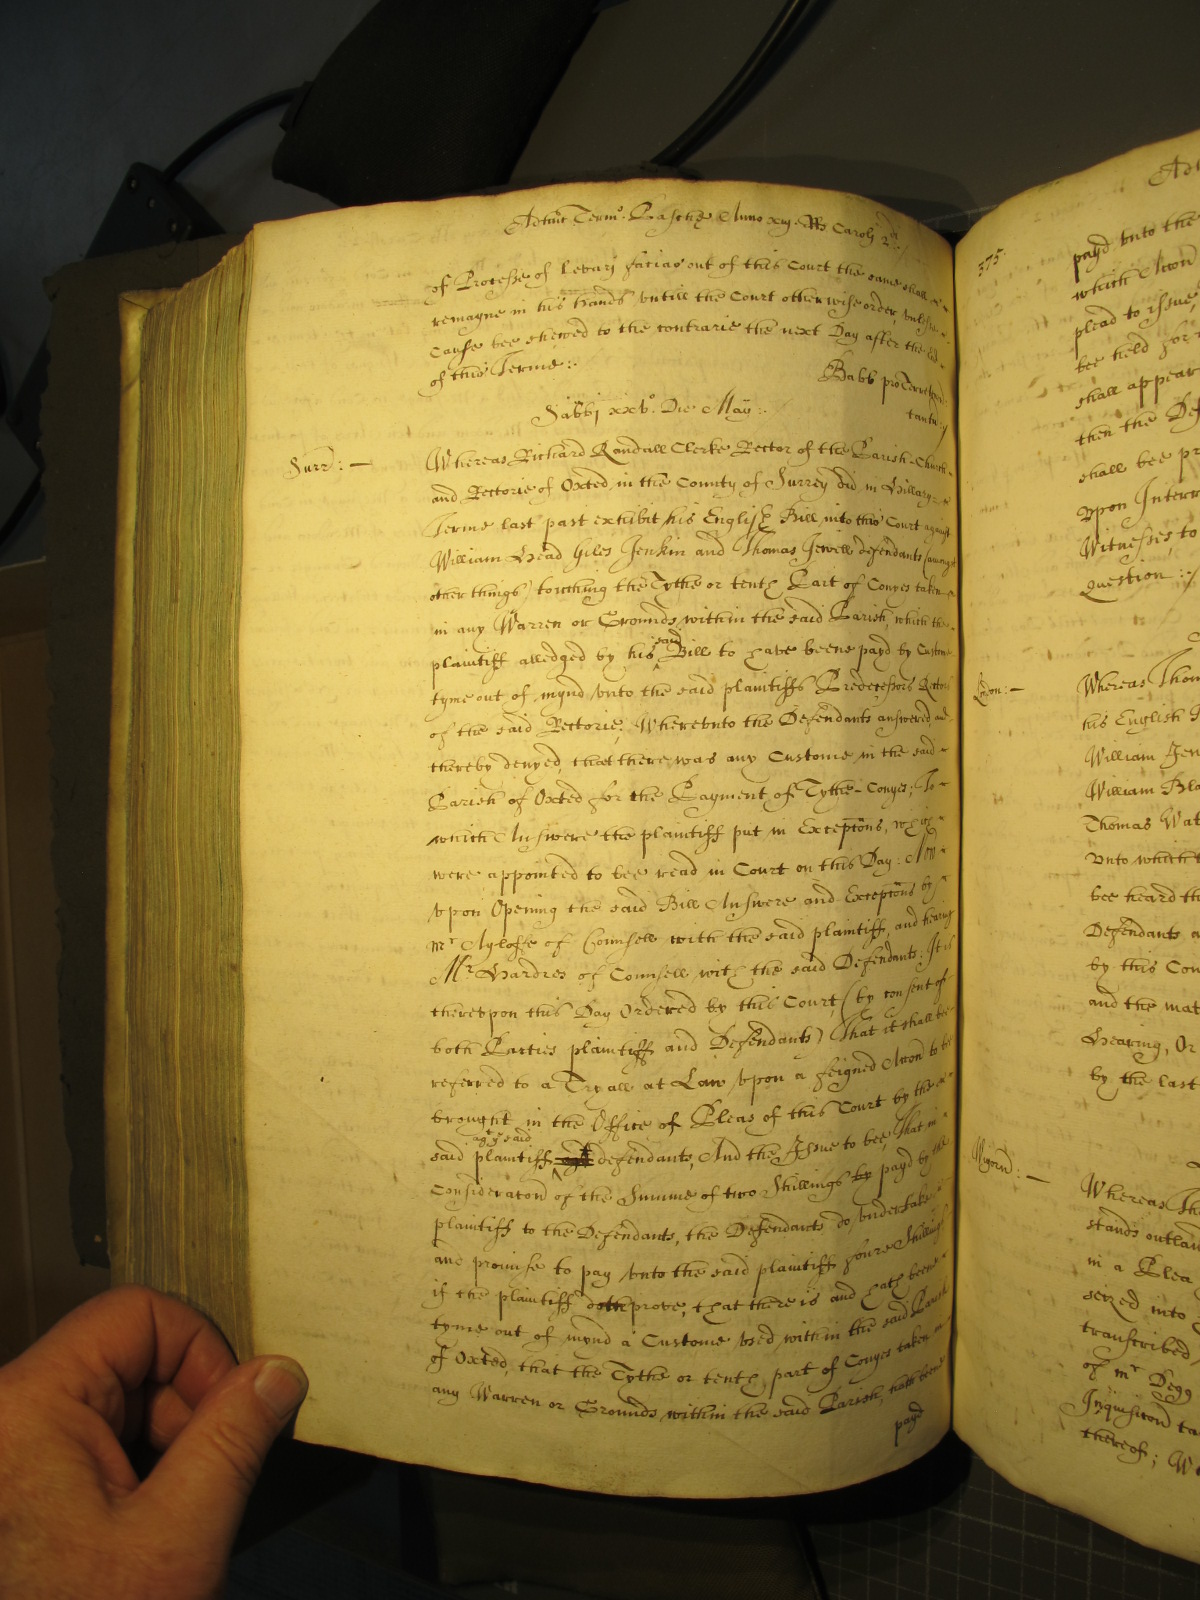 Adhuc Termo. Paschę Anno xiij. RRs Caroli 2di.
of Processe of levarj facias out of this Court the same shall
remayne in his hands vntill the Court otherwise order, vnlesse
Cause bee shewed to the contrarie the next Day after the End
of this Terme:.
Babb pro
tantu:/
Sabbj xxvo. Die Maij:.
Surr: —
Whereas Richard Randall Clerke Rector of the Parish-Church
and Rectorie of Oxted in the County of Surrey did in Hillary
Terme last past exhibit his English Bill into this Court against
William Head Giles Jenkin and Thomas Jewell defendants (amongst
other things) touching the Tythe or tenth Part of Conyes taken
in any Warren or Grounds within the said Parish, which the
plaintiff alledged by his said Bill to have beene payd by Custome
tyme out of mynd vnto the said plaintiffs Predecessors Rectors
of the said Rectorie; Wherevnto the Defendants answered, and
thereby denyed, that there was any Custome in the said
Parish of Oxted for the Payment of Tythe-Conyes; To
which Answere the plaintiff put in Exceptons, which
were appointed to bee read in Court on this Day: Now
vpon Opening the said Bill Answere and Exceptons by
mr Ayloffe of Counsell with the said plaintiff, and hearing
Mr Hardres of Counsell with the said Defendants: It is
therevpon this Day Ordered by this Court (by consent of
both Parties plaintiff and Defendants) That it shall bee
referred to a Tryall at Law vpon a feigned Accon to be
brought in the Office of Pleas of this Court by the
said plaintiff agt ye said defendants, And the Issue to bee, That in
Consideraton of the Summe of two Shillings by payd by the
plaintiff to the Defendants, the Defendants do vndertake
and promise to pay vnto the said plaintiff foure Shillings
if the plaintiff doth prove, that there is and hath beene
tyme out of mynd a Custome vsed within the said Parish
of Oxted, that the Tythe or tenth part of Conyes taken in
any Warren or Grounds within the said Parish, hath beene
payd
375.
payd vnto the
which Accon
plead to issue
bee held for
shall appear
then the Def
shall bee pr
vpon Interr
Witnesses to
question:./
London: —
Whereas Thom
his English B
William Jen
William Bla
Thomas Wat
vnto which th
bee heard th
Defendants a
by this Cou
and the mat
Hearing, Or
by the last
Wigorn: —
Whereas Th
stands outlaw
in a Plea
seized into
transcribed
of mr Degg
Inquisiton ta
thereof; W